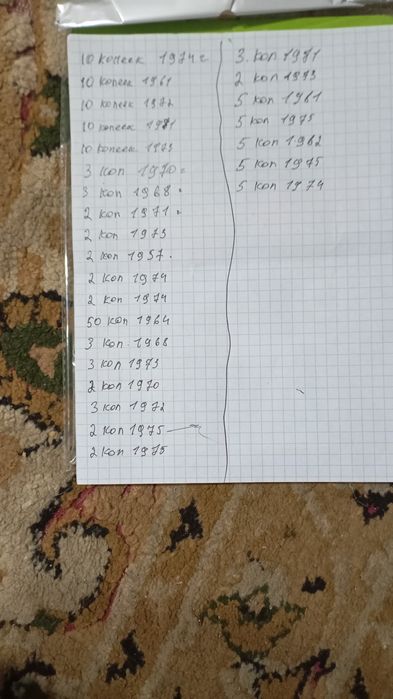 10 копеек 1974 г
10 копеек 1961
10 копеек 1972
10 копеек 1971
10 копеек 1973
3 коп 1970
3 коп 1968
2 коп 1971
2 коп 1973
2 коп 1957.
2 коп 1974
2 коп 1974
50 коп 1964
3 коп 1968
3 коп 1973
2 коп 1970
3 коп 1972
2 коп 1975
2 коп 1975
3. коп 1971
2 коп 1973
5 коп 1961
5 коп 1975
5 коп 1962
5 коп 1975
5 коп 1974